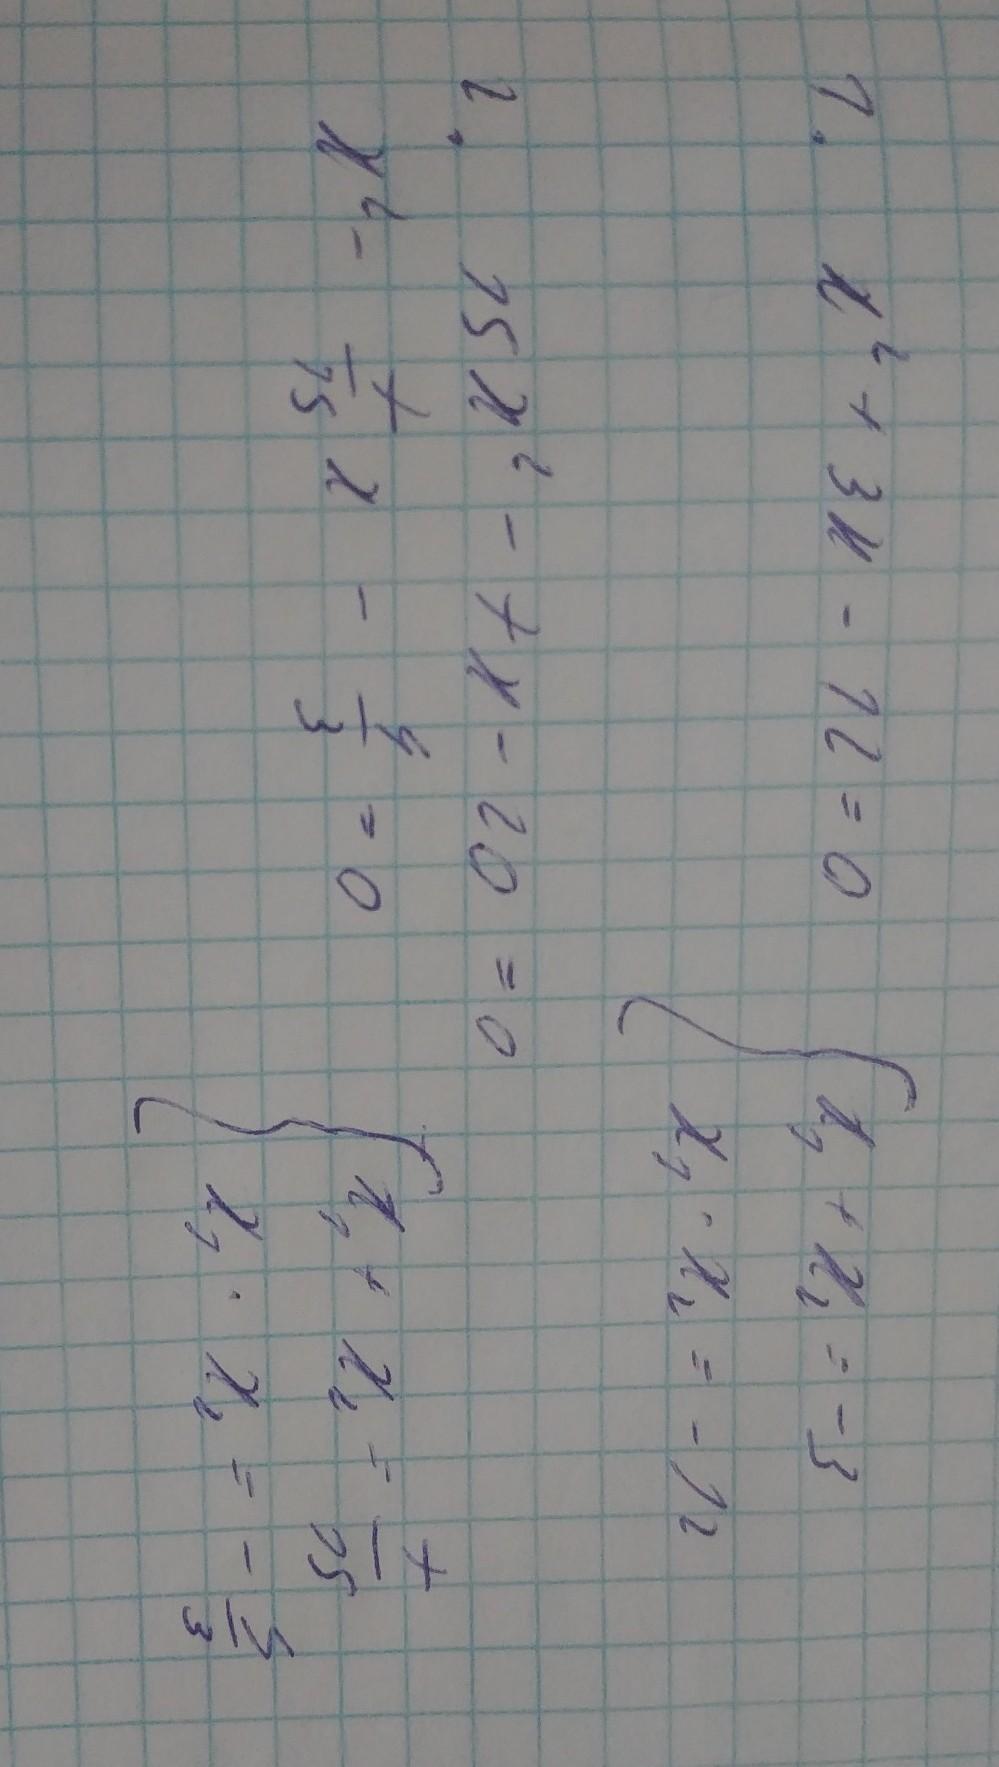 1. x² + 3x - 12 = 0
{ x₁ + x₂ = -3
x₁ · x₂ = -12
2. 15x² - 7x - 20 = 0
x² - 7/15 x - 4/3 = 0
{ x₁ + x₂ = 7/15
x₁ · x₂ = - 4/3